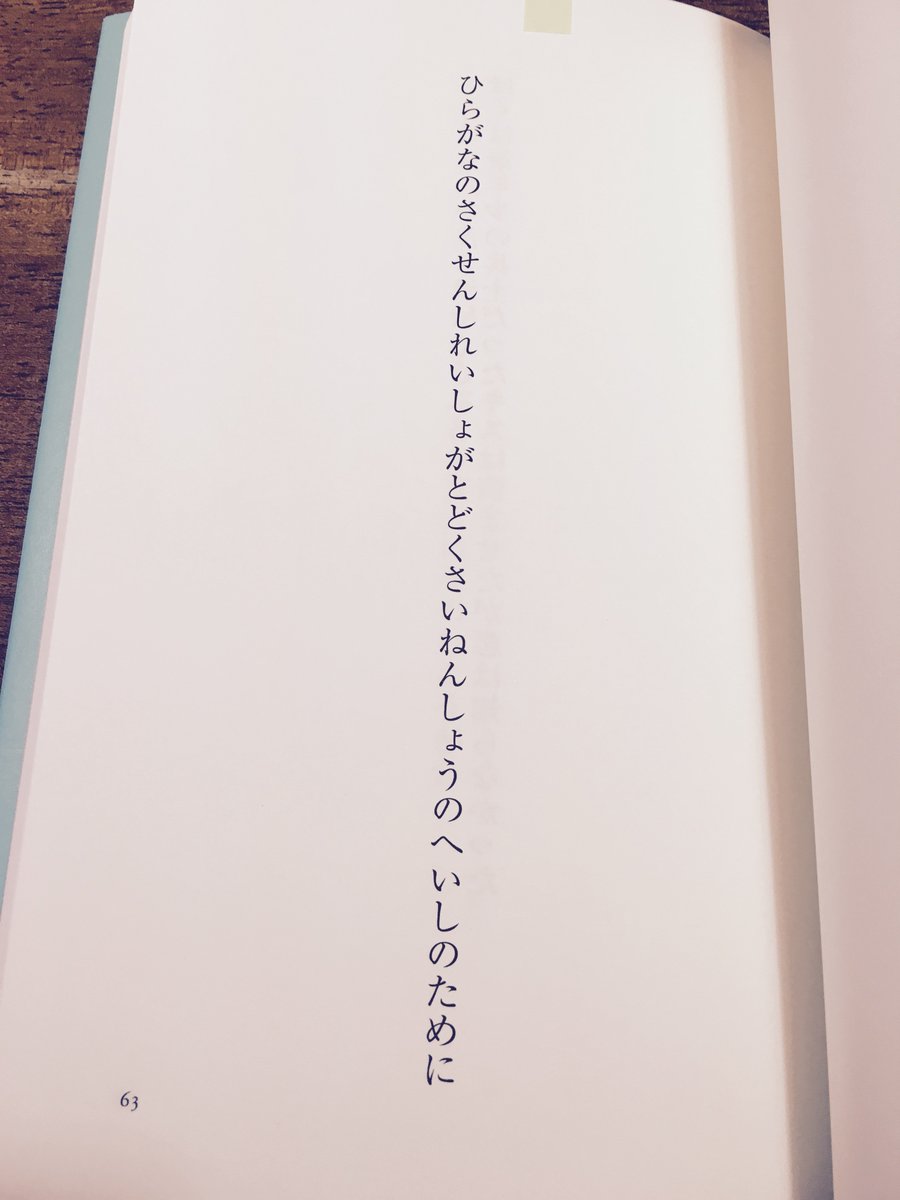 ひらがなのさくせんしれいしょがとどくさいねんしょうのへいしのために
63